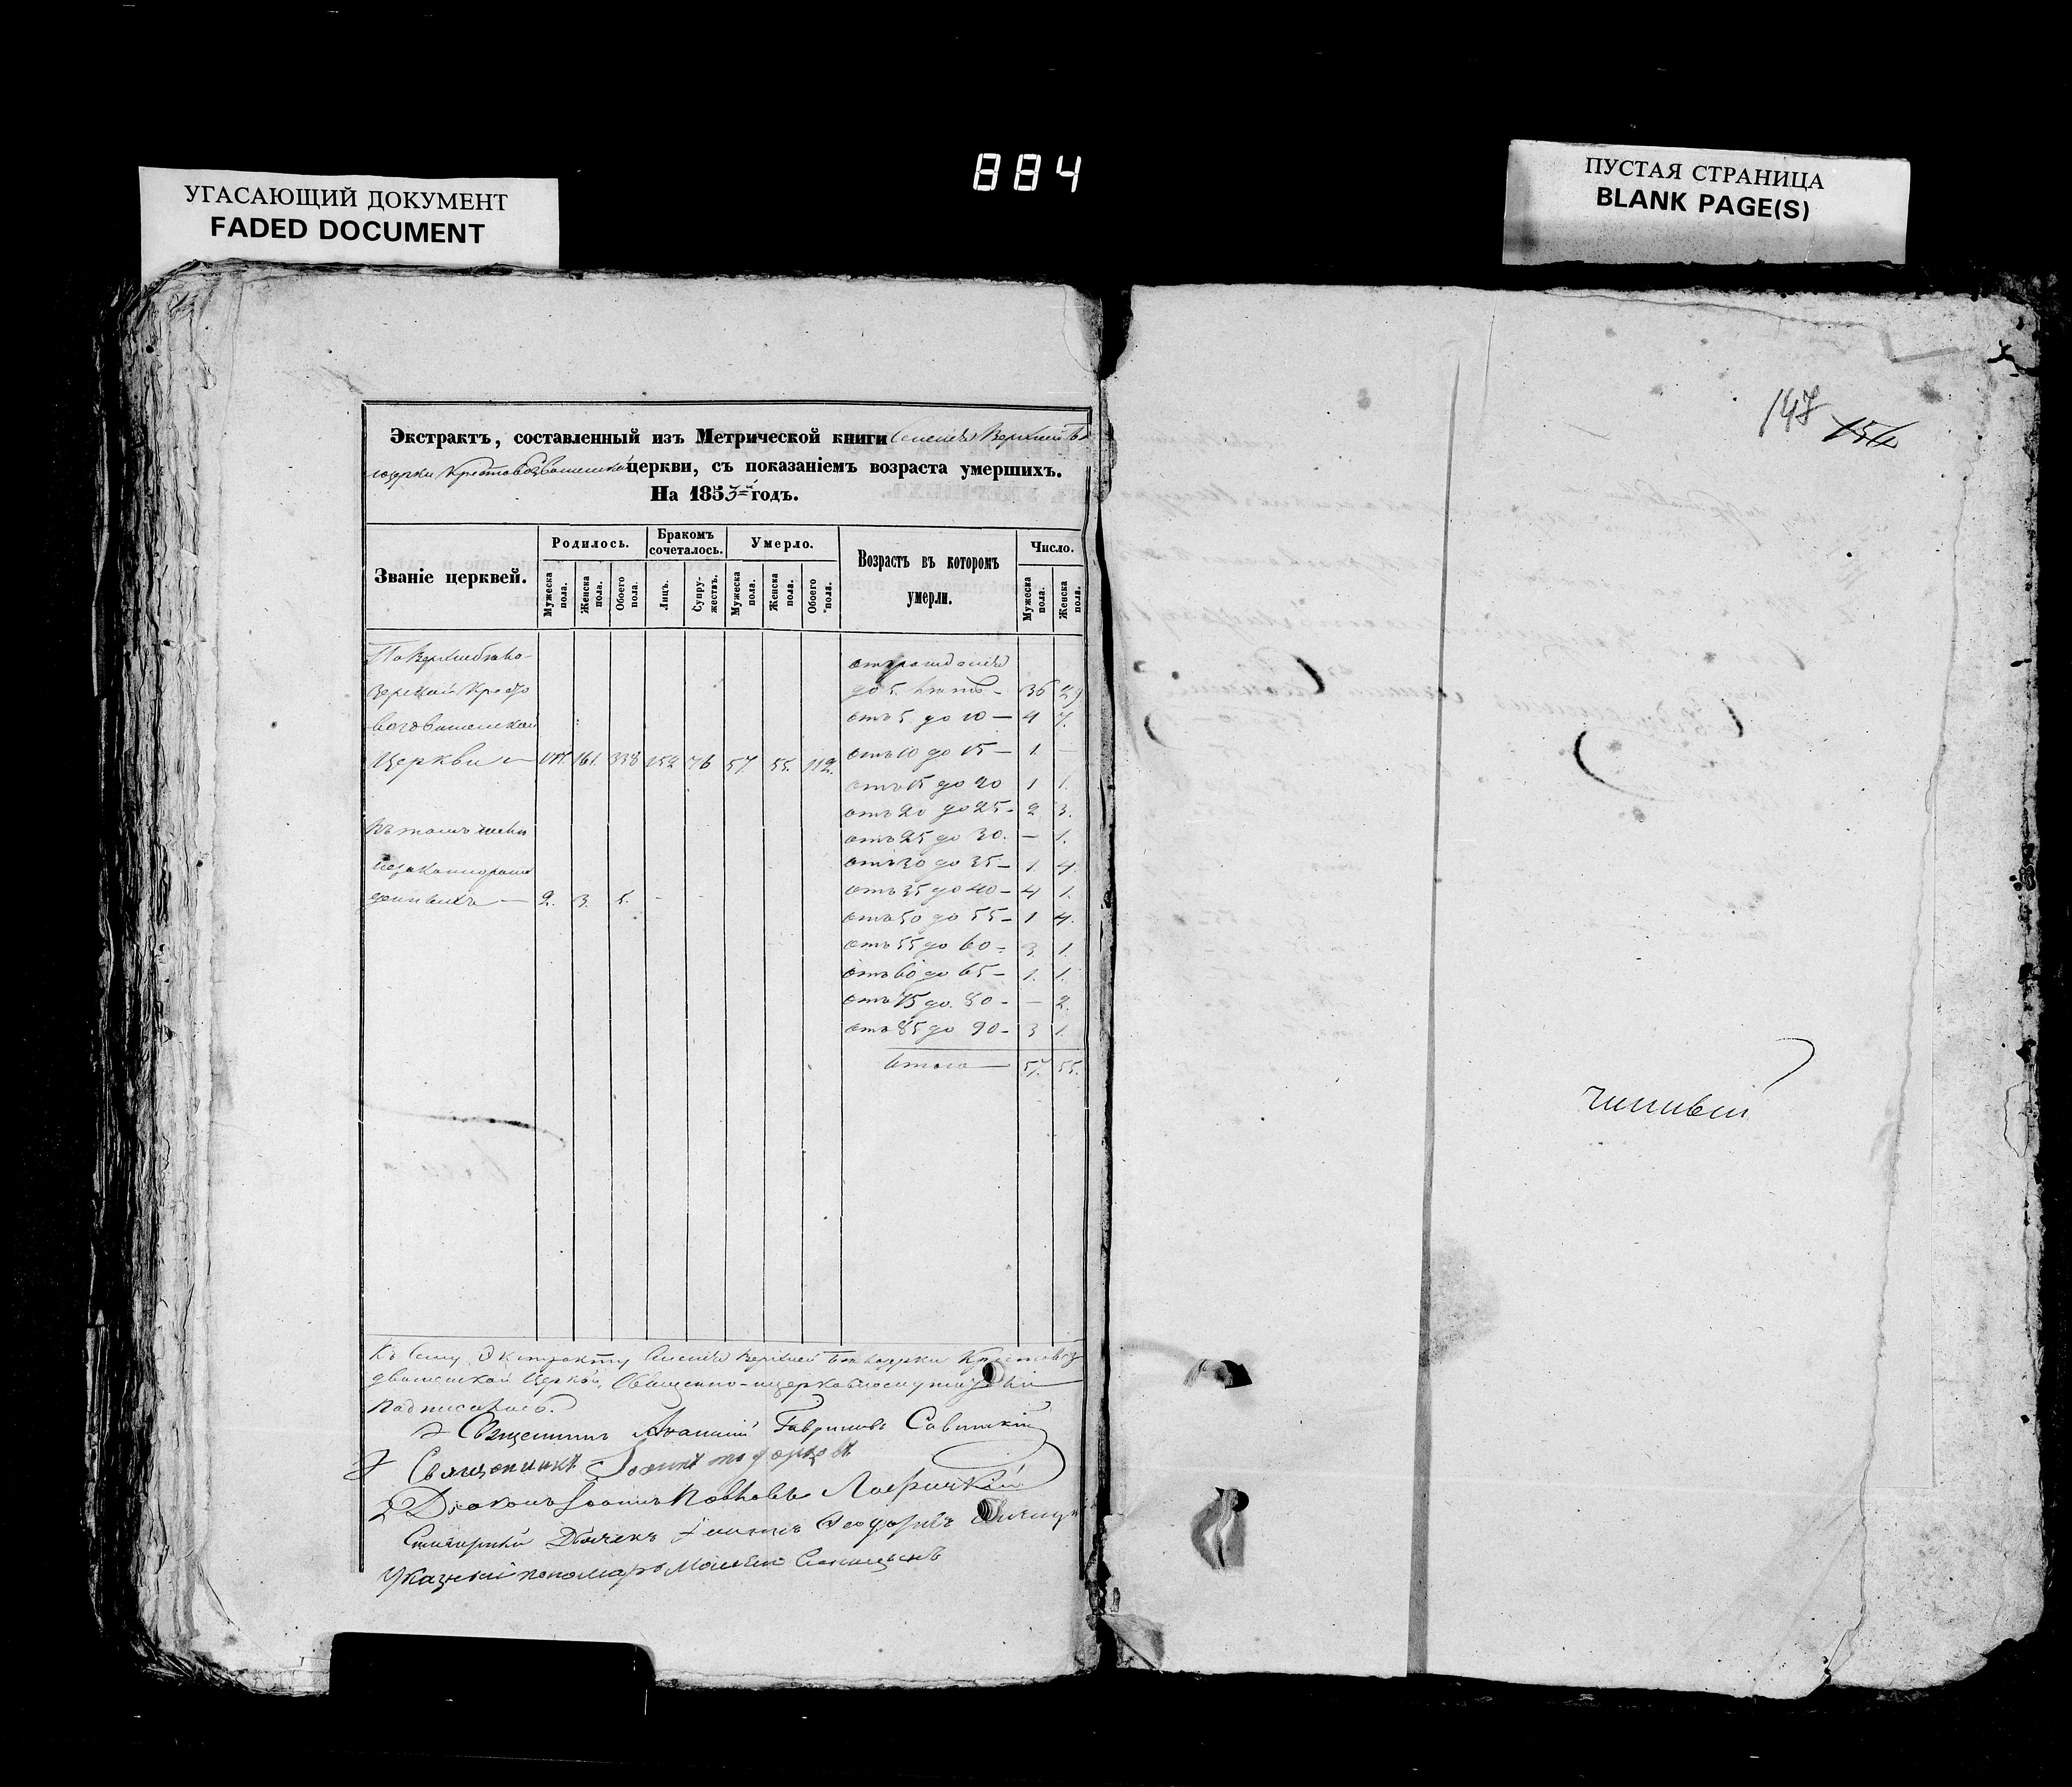 УГАСАЮЩИЙ ДОКУМЕНТ
FADED DOCUMENT
884
ПУСТАЯ СТРАНИЦА
BLANK PAGE(S)
147 154
Экстрактъ, составленный изъ Метрической книги Селенія Верхней Бѣ
лозерки Крестовоздвиженской церкви, съ показаніемъ возраста умершихъ.
На 1853й годъ.
Званіе церквей.
Родилось.
Бракомъ сочеталось.
Умерло.
Возрастъ въ которомъ умерли.
Число.
Мужеска пола.
Женска пола.
Обоего пола.
Лицъ.
Супружествъ.
Мужеска пола.
Женска пола.
Обоего пола.
Мужеска пола.
Женска пола.
По Верхнебѣло-
зерской Кресто
воздвиженской
Церкви — 177. 161. 338 152 76 57. 55. 112.
Въ томъ числѣ
незаконнорож
денныхъ — 2. 3. 5. - -
отъ рожденія
до 5. лѣтъ - 36 29
отъ 5 до 10 — 4 7.
отъ 10 до 15 — 1 —
отъ 15 до 20 1 1.
отъ 20 до 25 - 2 3.
отъ 25 до 30. — 1.
отъ 30 до 35 — 1. 4.
отъ 35 до 40 — 4 1.
отъ 50 до 55 — 1 4.
отъ 55 до 60 - 3. 1.
отъ 60 до 65 — 1. 1.
отъ 75 до. 80 - — 2.
отъ 85 до 90 - 3 1.
Итого — 57. 55.
Къ сему Экстракту Селенія Верхней Бѣлозерки Крестовоз
движенской Церкви, Священно-церковнослужители
подписались.
Священникъ Гавриловъ Савицкій
Священникъ
Діаконъ Іоаннъ Павловъ
Дьячекъ Іоаннъ Ѳеодоровъ
Указный пономарь Моисей